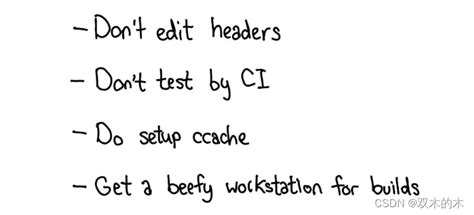 - Don't edit headers
- Don't test by CI
- Do setup ccache
- Get a beefy workstation for builds
CSDN @双木的木